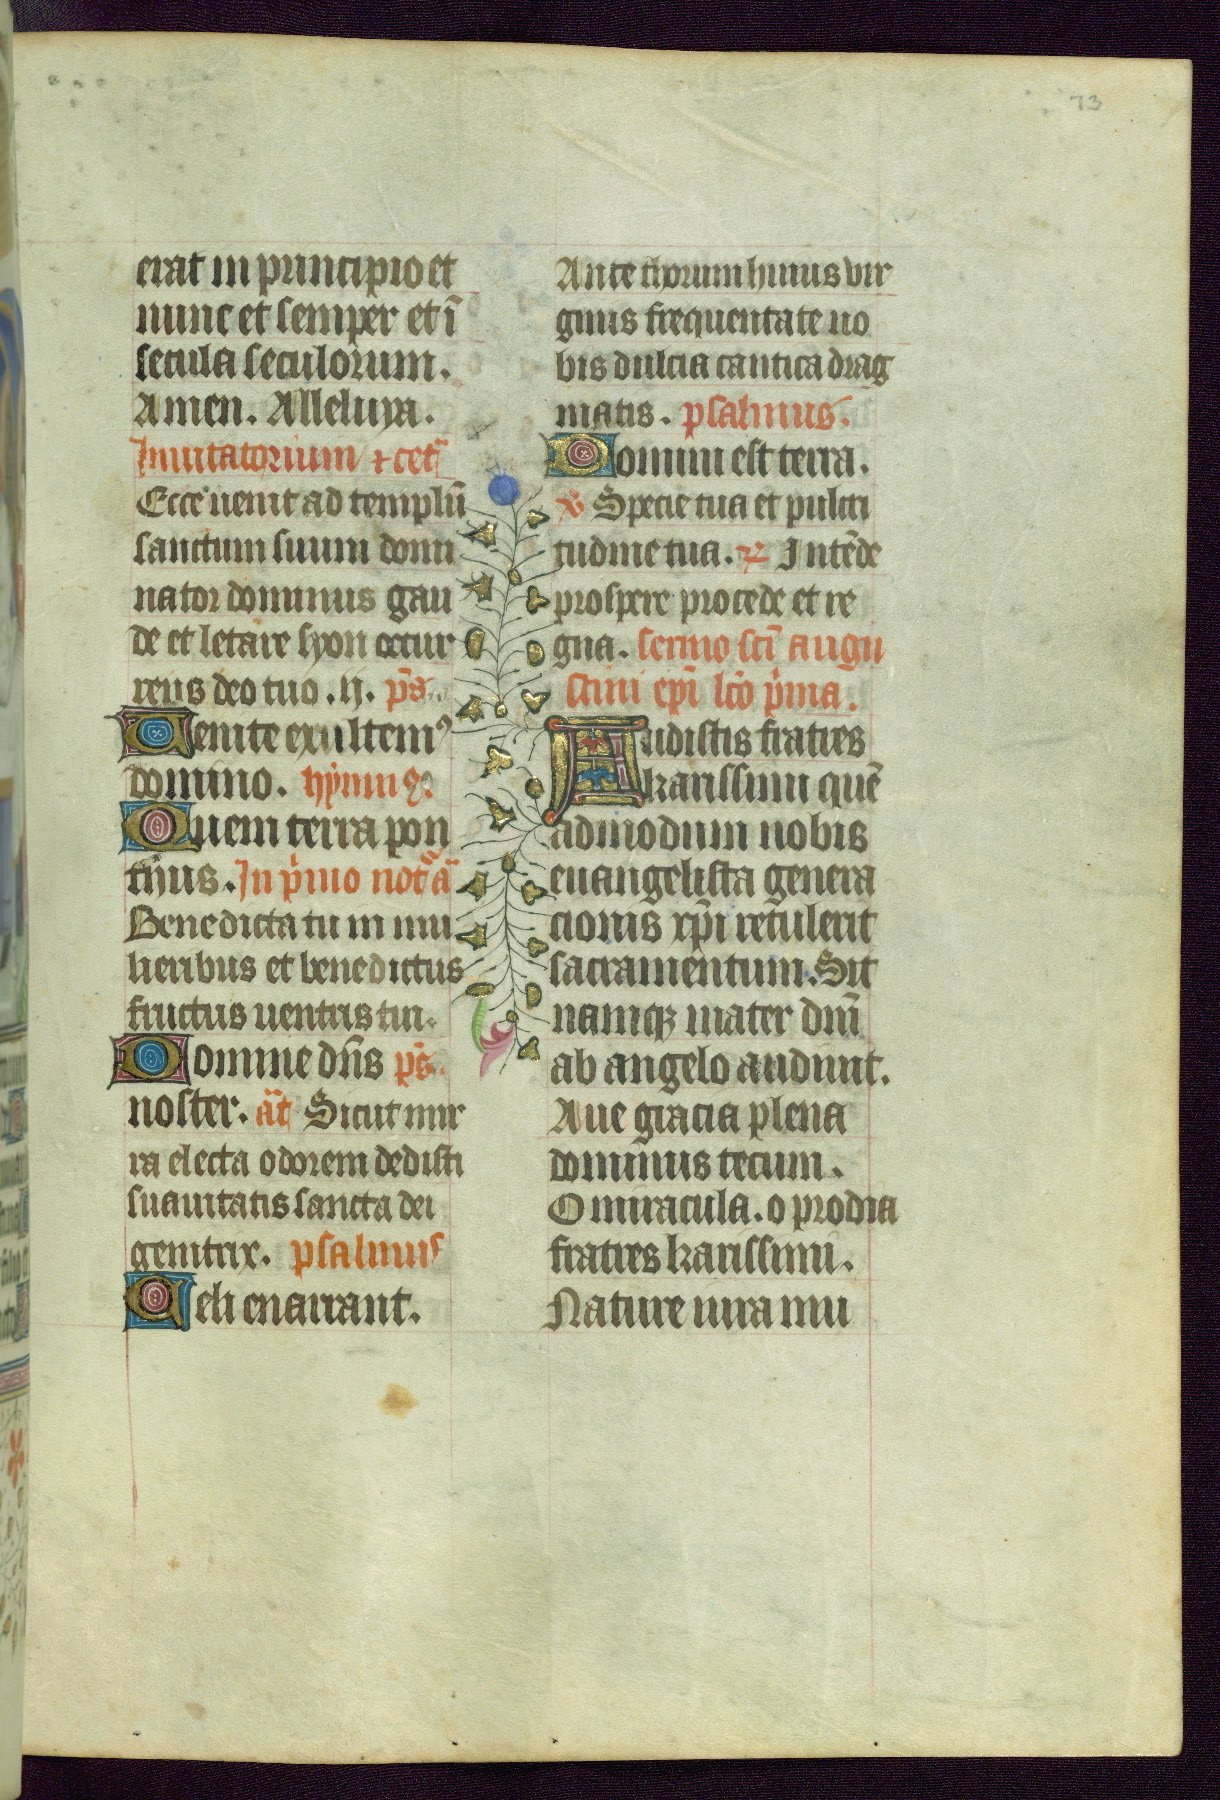 73
erat in principio et
nunc et semper et ī
secula seculorum.
Amen. Alleluya.
Inuitatorium
Ecce uenit ad templū
sanctum suum domi
nator dominus gau
de et letare syon occur
rens deo tuo .ij. ps̄
Uenite exultemꝰ
domino. hỳmnꝰ
Quem terra pon
thus. In p̊mo noct̄ ā
Benedicta tu in mu
lieribus et benedictus
fructus uentris tui.
Domine dn̄s ps̄
noster. ān̄ Sicut mir
ra electa odorem dedisti
suauitatis sancta dei
genitrix. psalmus
Celi enarrant.
Ante thorum huius vir
ginis frequentate no
bis dulcia cantica drag
matis. psalmus.
Domini est terra.
℣ Specie tua et pulcri
tudine tua. ℟ Intēde
prospere procede et re
gna. sermo sc̄i augu
stini ep̄i lc̄o p̊ma.
Audistis fratres
karissimi quē
admodum nobis
euangelista genera
cionis xp̄i retulerit
sacramentum. Sit
namqꝫ mater dn̄i
ab angelo audiuit.
Aue gracia plena
dominus tecum.
O miracula. o prodia
fratres karissimi.
Nature iura mu